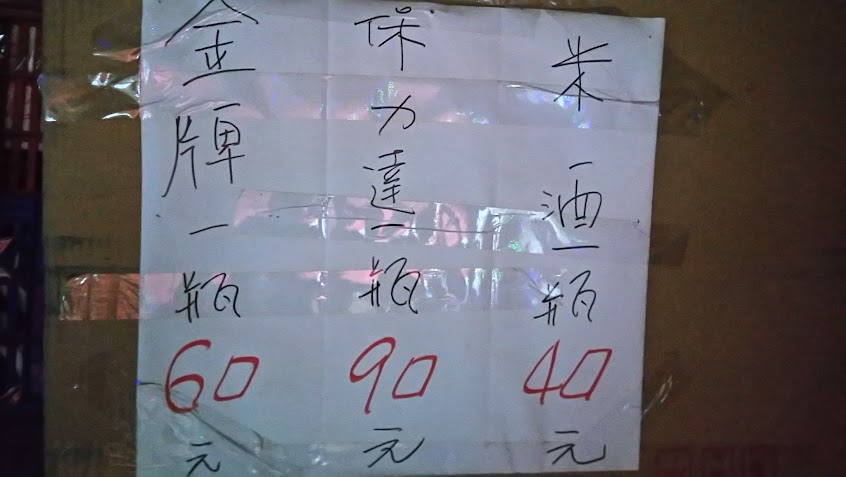 米酒一瓶40元
保力達一瓶90元
金牌一瓶60元